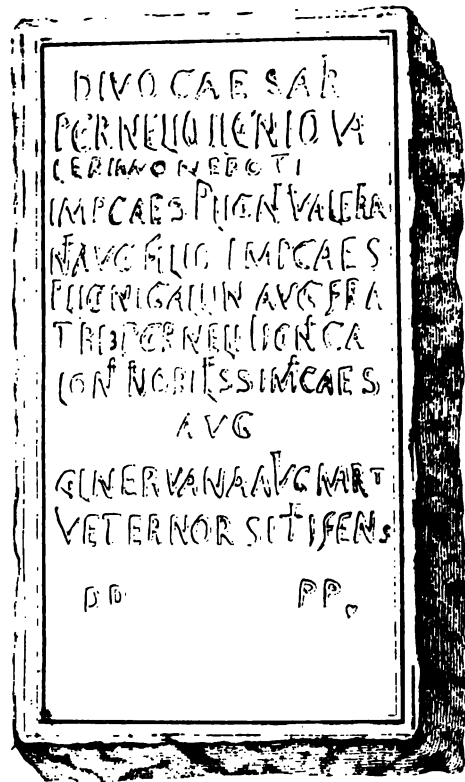 DIVO CAESARI
P CORNELIO LICINIO VA
LERIANO NEPOTI
IMP CAES P LICINI VALERIA
NI AVG FILIO IMP CAES
P LICINI AVG FRA
TRI P CORNELI LICINI
LONINI NOBILISSIMI CAES
AVG
NERVIANA AVG MART
VETERANOR SITIFENS
DD PP